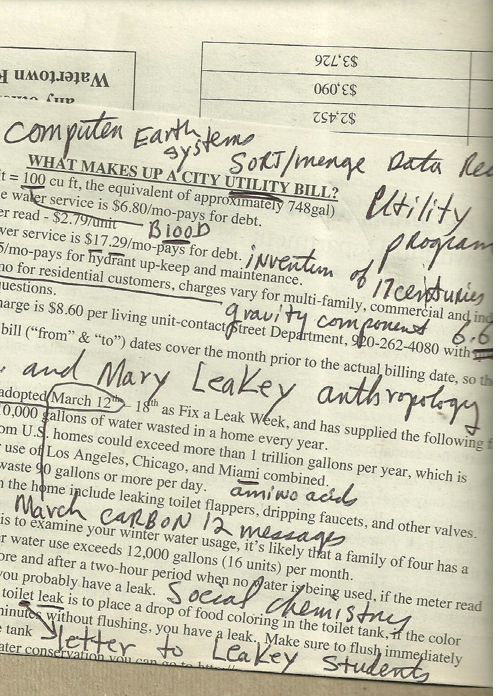 Watertown
$3,726
$3,090
$2,452
Computer Earth systems
SORT/merge Data
WHAT MAKES UP A CITY UTILITY BILL?
= 100 cu ft, the equivalent of approximately 748gal)
Utility program
water service is $6.80/mo-pays for debt.
er read - $2.79/unit
Blood
ver service is $17.29/mo-pays for debt.
invention of 17 centuries
5/mo-pays for hydrant up-keep and maintenance.
no for residential customers, charges vary for multi-family, commercial and
questions.
gravity component 6.6
harge is $8.60 per living unit-contact Street Department, 920-262-4080 with
bill ("from" & "to") dates cover the month prior to the actual billing date, so
and Mary Leakey anthropology
adopted March 12th - 18th as Fix a Leak Week, and has supplied the following
0,000 gallons of water wasted in a home every year.
om U.S. homes could exceed more than 1 trillion gallons per year, which is
use of Los Angeles, Chicago, and Miami combined.
waste 90 gallons or more per day.
amino acids
n the home include leaking toilet flappers, dripping faucets, and other valves.
March CARBON 12 messages
is to examine your winter water usage, it's likely that a family of four has a
r water use exceeds 12,000 gallons (16 units) per month.
ore and after a two-hour period when no water is being used, if the meter read
you probably have a leak.
Social chemistry
toilet leak is to place a drop of food coloring in the toilet tank, if the color
minutes without flushing, you have a leak. Make sure to flush immediately
e tank
letter to Leakey students
ater conservation you can go to